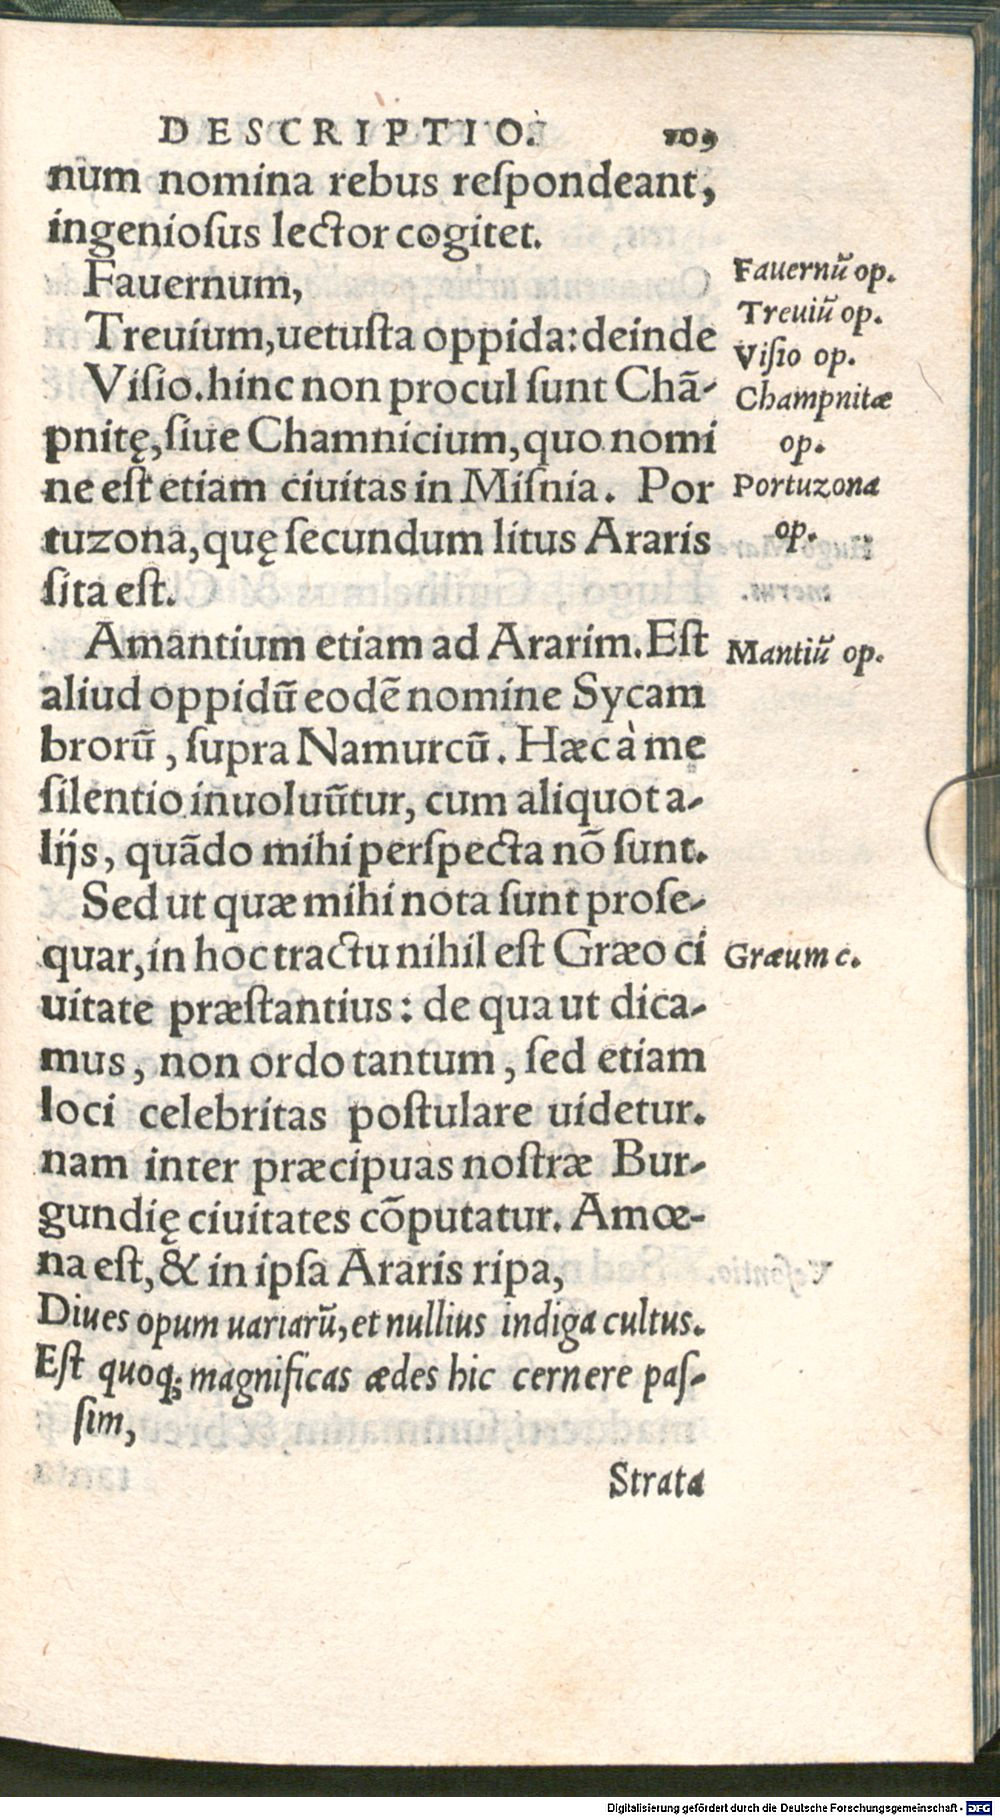 DESCRIPTIO. 109
num nomina rebus reſpondeant,
ingenioſus lector cogitet.
Fauernum,
Treuium,uetuſta oppida:deinde
Viſio.hinc non procul ſunt Chã-
pnitę,ſiue Chamnicium,quo nomi
ne eſt etiam ciuitas in Miſnia. Por
tuzona,quę ſecundum litus Araris
ſita eſt.
Amantium etiam ad Ararim.Eſt
aliud oppidũ eodẽ nomine Sycam
brorũ, ſupra Namurcũ. Hæc à me
ſilentio inuoluũtur, cum aliquot a-
lijs, quãdo mihi perſpecta nõ ſunt.
Sed ut quæ mihi nota ſunt proſe-
quar,in hoc tractu nihil eſt Græo ci
uitate præſtantius: de qua ut dica-
mus, non ordo tantum, ſed etiam
loci celebritas poſtulare uidetur.
nam inter præcipuas noſtræ Bur-
gundię ciuitates cõputatur. Amœ-
na eſt,& in ipſa Araris ripa,
Diues opum uariarũ,et nullius indiga cultus.
Eſt quoq; magnificas ædes hic cernere paſ-
ſim,
Strata
Fauernũ op.
Treuiũ op.
Viſio op.
Champnitæ
op.
Portuzona
op.
Mantiũ op.
Græum c.
Digitalisierung gefördert durch die Deutsche Forschungsgemeinschaft - DFG